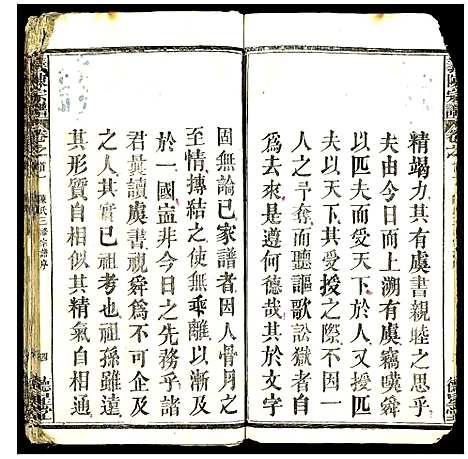 精竭力其有虞書親睦之思乎
夫由今日而上溯有虞竊嘆舜
以匹夫而受天下於人又授匹
夫以天下其受授之際不因一
人之予奪而聽謳歌訟獄者自
為去來是遵何德哉其於文字
固無論已家譜者因人骨月之
至情摶結之使無乖離以小試
於一國盍非今日之先務乎諸
君曩讀虞書視舜為不可企及
之人其實已祖考也祖孫雖遠
其形質自相似其精氣自相通
陳氏三修宗譜序
四